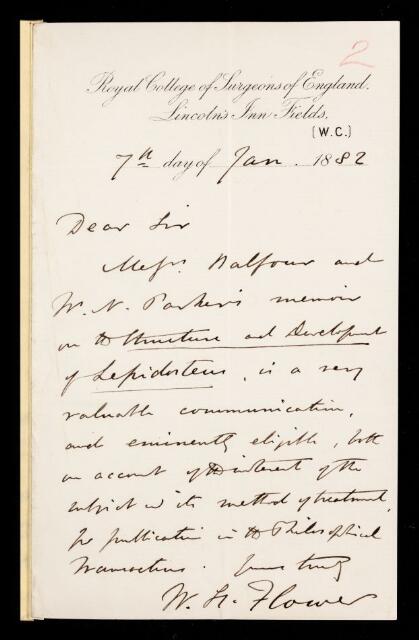 2
Royal College of Surgeons of England.
Lincoln's Inn Fields.
(W.C.)
7th day of Jan. 1882
Dear Sir
Messrs. Balfour and
W. N. Parker's memoir
on the Structure and Development
of Lepidosteus, is a very
valuable communication,
and eminently eligible, both
on account of the interest of the
subject & its method of treatment,
for publication in the Philosophical
Transactions. Yours truly
W. H. Flower